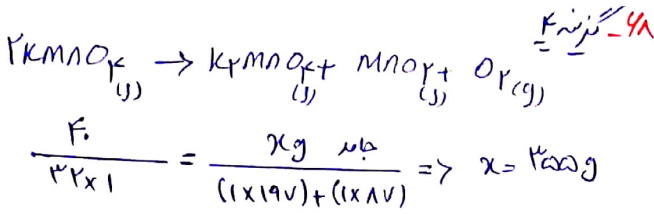 ۶۸- گزینه ۴
۲KMnO۴(s) → K۲MnO۴(s) + MnO۲(s) + O۲(g)
۴۰ / ۳۲×۱ = xg جامد / (۱×۱۹۷)+(۱×۸۷) => x= ۳۵۵g